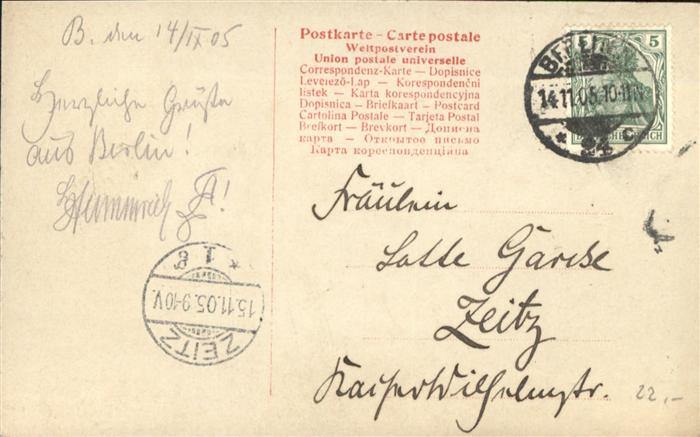 B. den 14/IX 05
Herzliche Grüße
aus Berlin!
Postkarte – Carte postale
Weltpostverein
Union postale universelle
Correspondenz-Karte — Dopisnice
Levelező-Lap — Korespondenční
listek — Karta korespondencyjna
Dopisnica — Briefkaart — Postcard
Cartolina Postale — Tarjeta Postal
Brefkort — Brevkort — Дописна
карта — Открытое письмо
Карта кореспонденційна
5
14.11.05.10-11N
* 24 c
Fräulein
Lotte Garcke
Zeitz
Kaiser Wilhelmstr.
22,-
ZEITZ
15.11.05.9-10V.
* 1 g